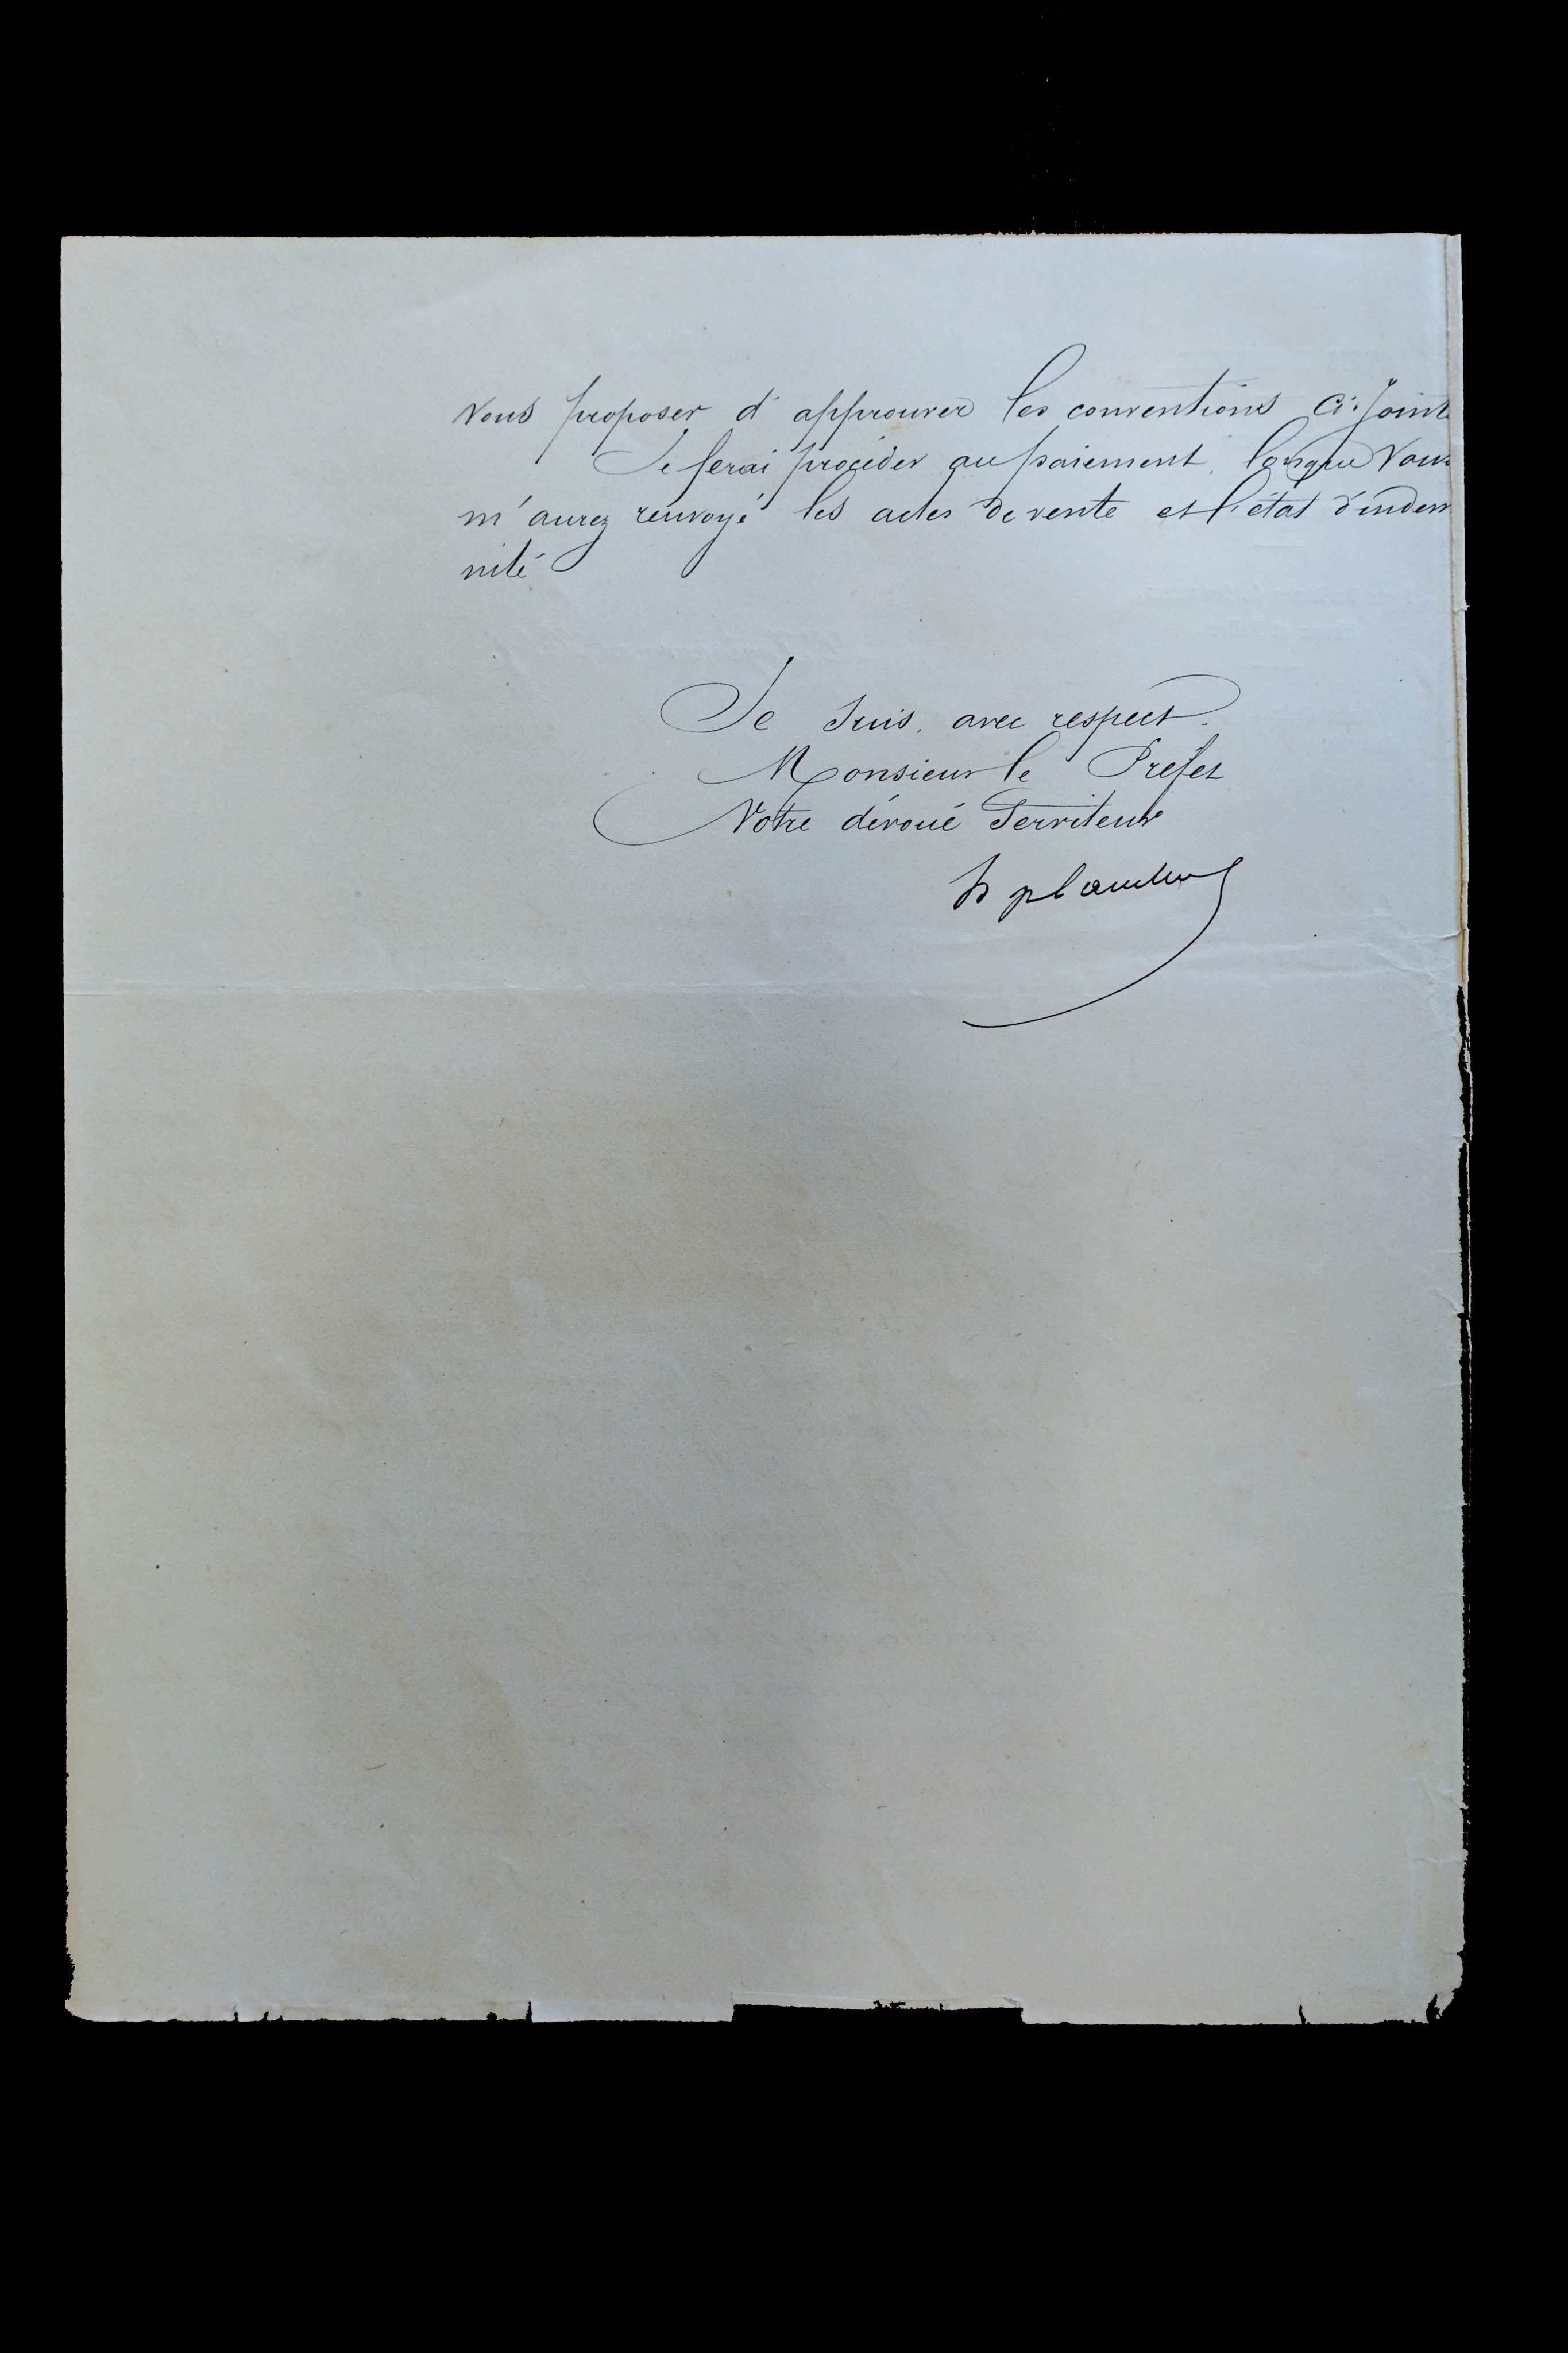 vous proposer d'approuver les conventions ci-joint
Je ferai procéder au paiement, lorsque vous
m'aurez renvoyé les actes de vente et l'état d'indem
nité
Je suis, avec respect.
Monsieur le Préfet
Votre dévoué Serviteur